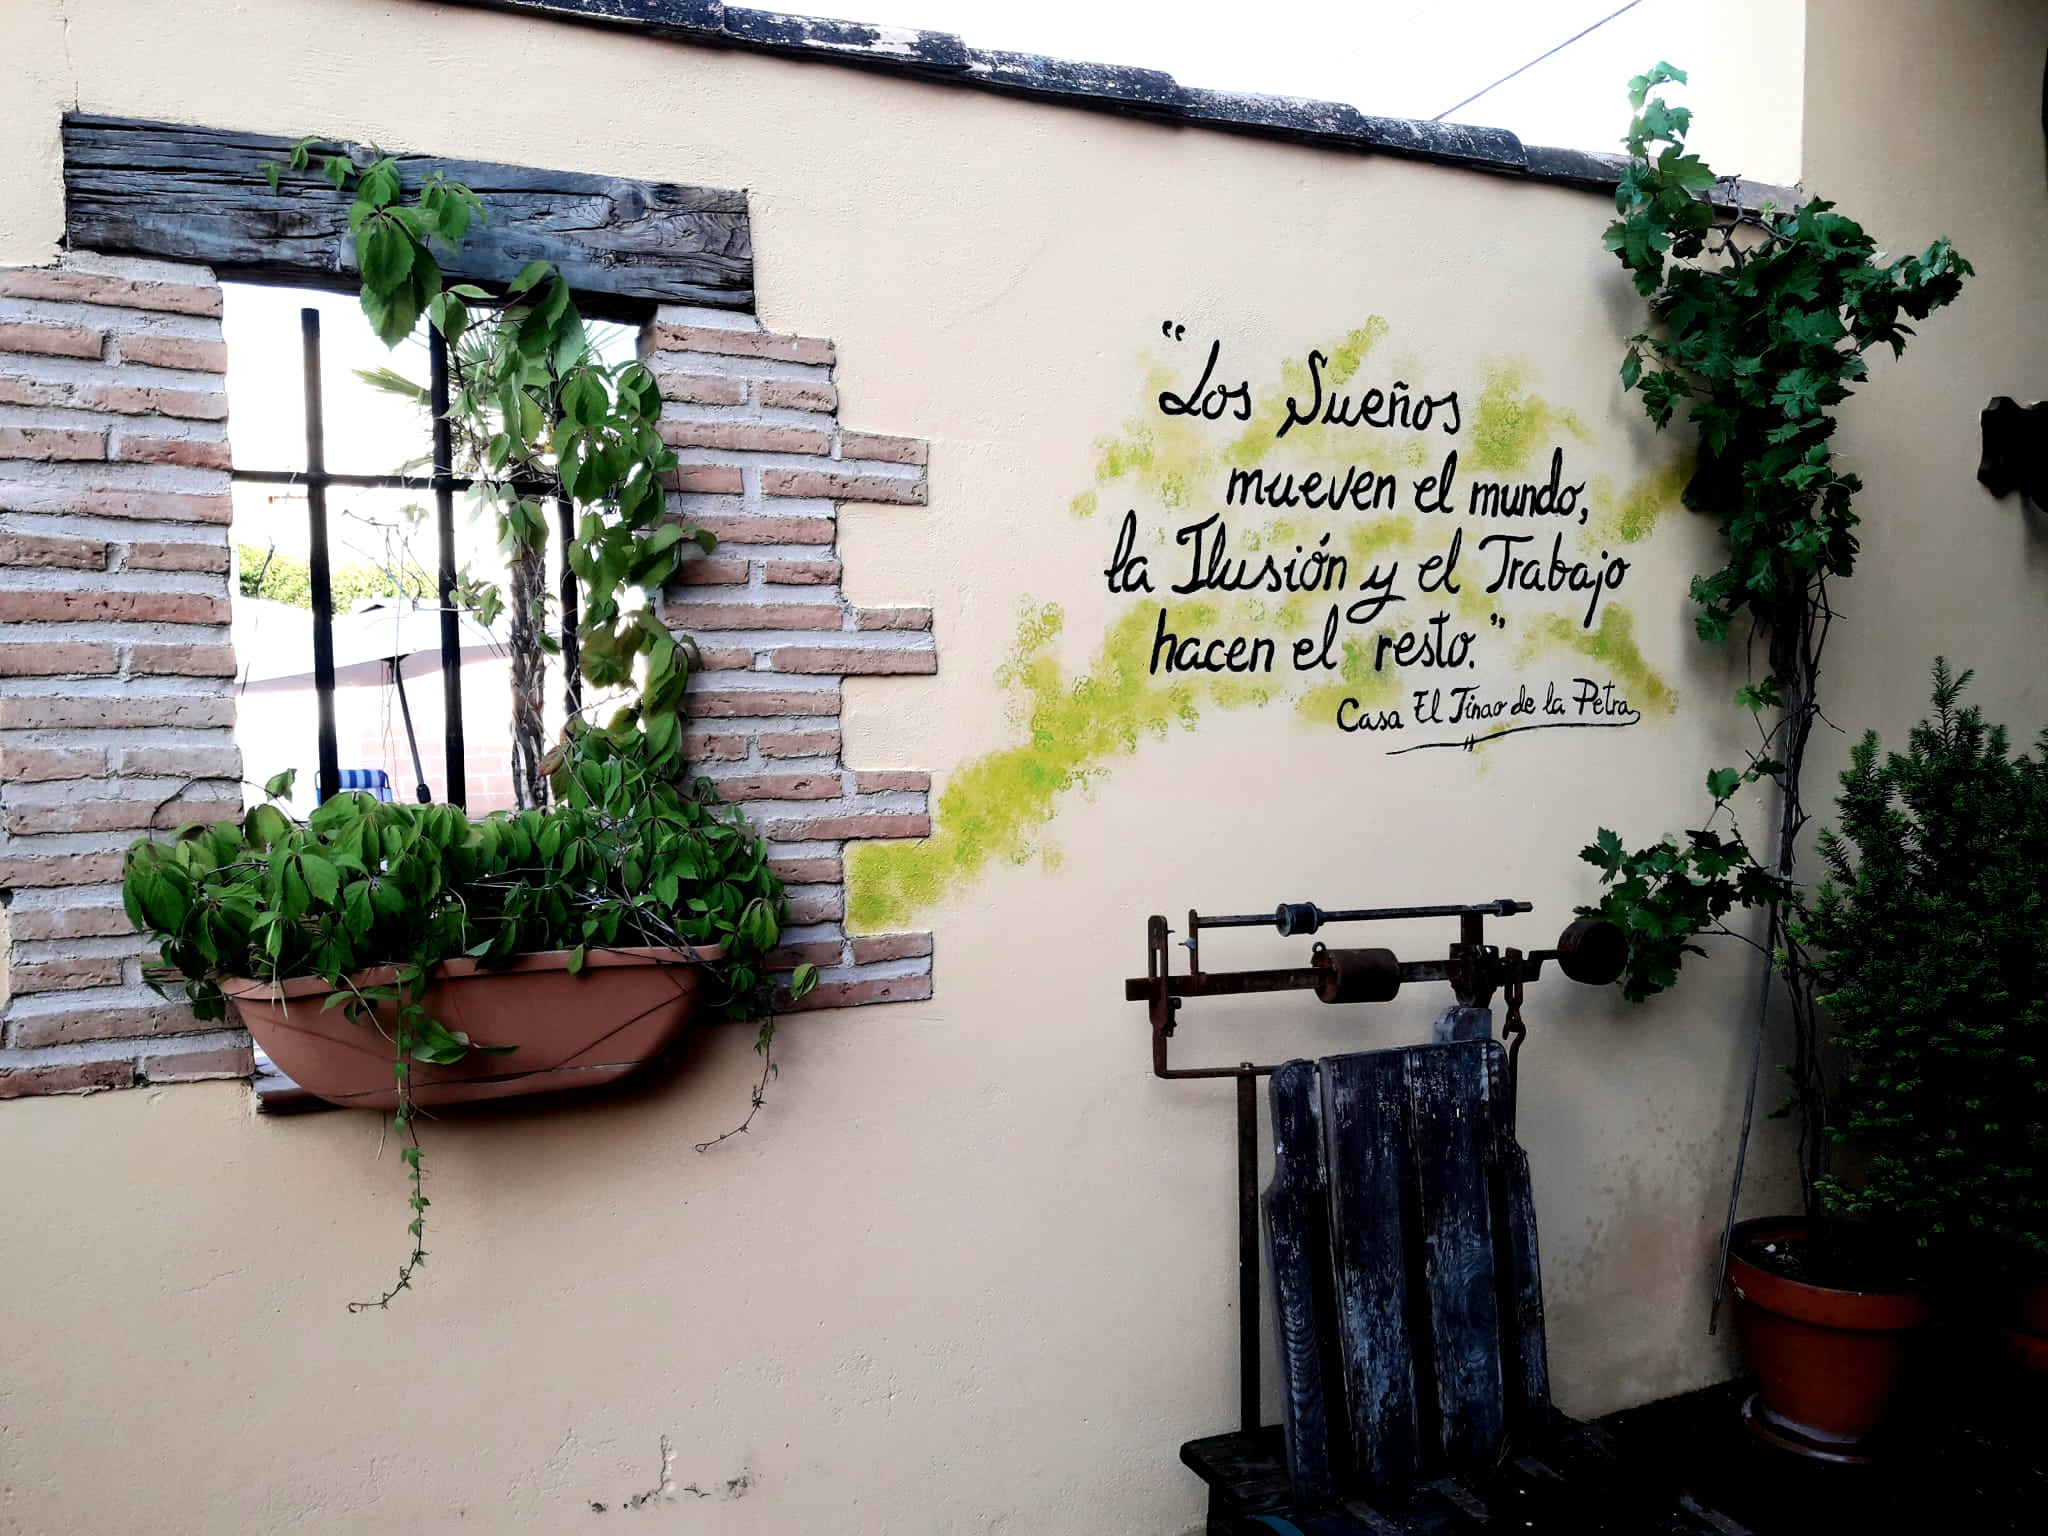 “Los Sueños
mueven el mundo,
la Ilusión y el Trabajo
hacen el resto.”
Casa El Tinao de la Petra